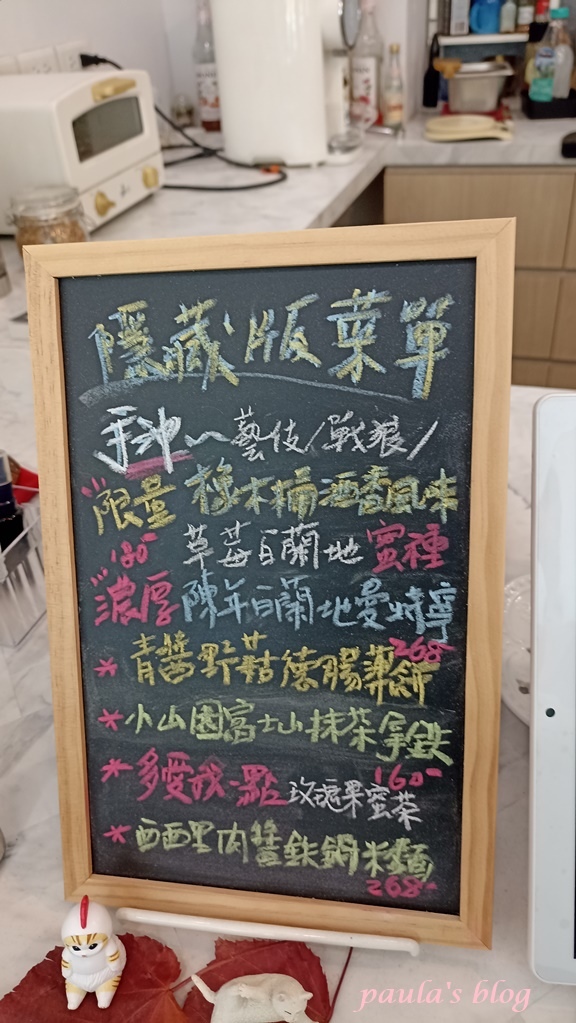 隱藏版菜單
手沖~藝伎/戰狼/
限量 橡木桶酒香風味
180 草莓白蘭地 蜜種
濃厚 陳年白蘭地曼特寧
268-
*青醬野菇德腸薄餅
*小山園富士山抹茶拿鉄
160-
*多愛我一點 玫瑰果蜜茶
*西西里肉醬鉄鍋米麵
268-
paula's blog